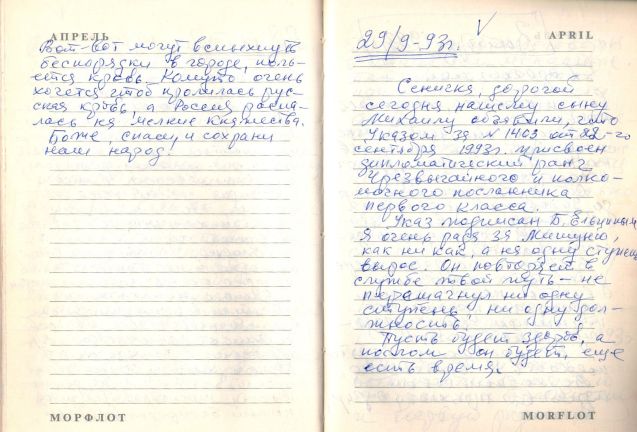 АПРЕЛЬ
Вот-вот могут вспыхнуть
беспорядки в городе, поль-
ется кровь. Кому-то очень
хочется чтоб пролилась рус-
ская кровь, а Россия распа-
лась на мелкие княжества.
Боже, спаси, и сохрани
наш народ.
МОРФЛОТ
APRIL
29/9-93г.
Сеничка, дорогой
сегодня нашему сыну
Михаилу объявили, что
Указом за № 1403 от 22-го
сентября 1993г. присвоен
дипломатический ранг
Чрезвычайного и полно-
мочного посланника
первого класса.
Указ подписан Б. Ельциным
Я очень рада за Мишуню,
как ни как, а на одну ступень
вырос. Он повторяет в
службе твой путь – не
перешагнул ни одну
ступень, ни одну дол-
жность.
Пусть будет здоров, а
послом он будет, еще
есть время.
MORFLOT